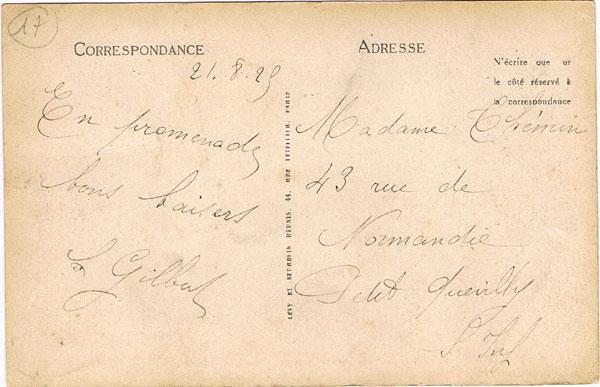 17
CORRESPONDANCE
ADRESSE
N'écrire que sur
le côté réservé à
la correspondance
21.8.25
En promenade
bons baisers
Gilbert
LEVY ET NEURDEIN REUNIS, 44, RUE LETELLIER, PARIS
Madame Thémin
43 rue de
Normandie
Petit Quevilly
S. Inf